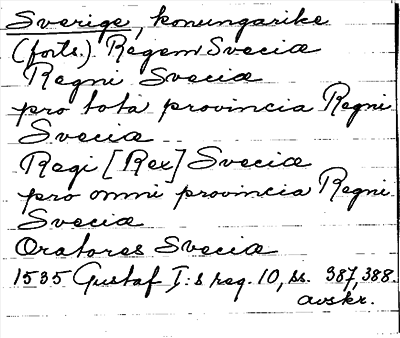 Sverige, konungarike
(forts.) Regem Sveciæ
Regni Sveciæ
pro tota provincia Regni
Sveciæ
Regi [Rex] Sveciæ
pro omni provincia Regni
Sveciæ
Oratores Sveciæ
1535 Gustaf I:s reg. 10, ss. 387, 388.
avskr.